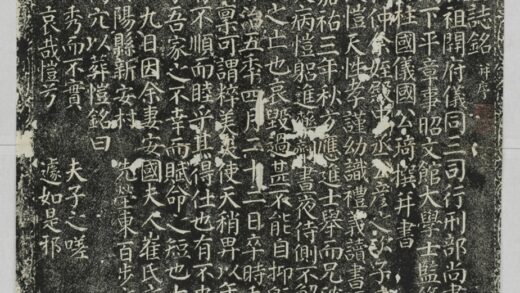 誌銘 并序
祖開府儀同三司行刑部尚書
下平章事昭文館大學士監修
柱國儀國公琦撰并書
仲余姪殿中丞公彥之次子
愷天性孝謹幼識禮義讀書
嘉祐三年秋方應進士舉而兄
病愷躬進藥劑晝夜待側不解
之亡也哀毀過甚不能自抑
治五年四月二十二日卒時
禀可謂粹美使天稍畀以年
不順而睦乎其得仕也有不
吾家之不幸而賦命之短也
九日因余妻安國夫人崔氏
陽縣新安村 先塋東百步
穴以葬愷銘曰
秀而不實 夫子之嗟
哀哉愷兮 遽如是邪